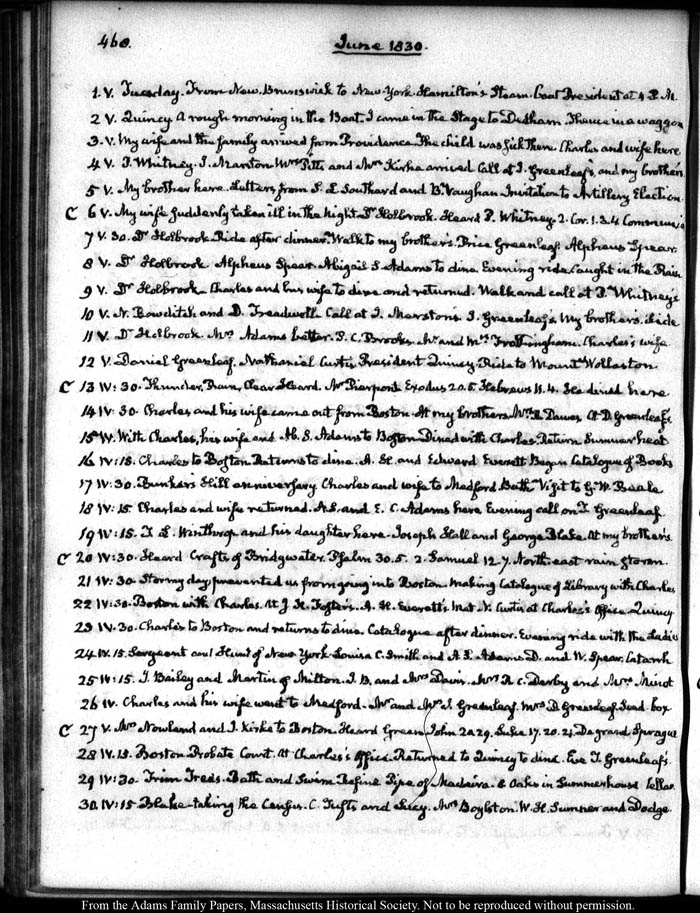 460.
June 1830.
1. V. Tuesday. From New Brunswick to New York. Hamilton's Steam boat President at 4 P.M.
2 V. Quincy A rough morning in the Boat. I came in the Stage to Dedham. Thence in a waggon
3. V. My wife and the family arrived from Providence. The child was sick there. Charles and wife here
4 V. P. Whitney. J. Marston Mrs and Mrs Kirke arrived Call at J. Greenleaf's, and my brother's
5 V. My brother here. Letters from S. L. Southard and B. Vaughan. Invitation to Artillery Election.
C 6 V. My wife suddenly taken ill in the Night. Dr Holbrook. Heard P. Whitney. 2. Cor. 1.3.4 Communion
7 V. 30. Dr Holbrook. Ride after dinner. Walk to my brother's. Price Greenleaf. Alpheus Spear.
8 V. Dr Holbrook Alpheus Spear. Abigail S. Adams to dine. Evening ride. Caught in the Rain
9 V. Dr Holbrook. Charles and his wife to dine and returned. Walk and call at P. Whitney's
10 V. N. Bowditch and D. Treadwell Call at J. Marston's J. Greenleaf's My brother's. Ride
11 V. Dr Holbrook. Mrs Adams better. P. C. Brooks. Mr and Mrs Frothingham. Charles's wife
12 V. Daniel Greenleaf. Nathaniel Curtis, President Quincy. Ride to Mount Wollaston
C 13 IV: 30. Thunder, Rain, Clear Heard. Mr Pierpont Exodus 20.5. Hebrews 11.4. He dined here
14 IV: 30. Charles and his wife came out from Boston. At my brother's Mr Dawes. At D. Greenleaf's
15 IV. With Charles, his wife and Ab. S. Adams to Boston Dined with Charles. Return. Summer heat
16 IV: 15. Charles to Boston. Returns to dine. A. H. and Edward Everett. Began Catalogue of Books
17 IV: 30. Bunkers Hill anniversary. Charles and wife to Medford Bath. Visit to G. W. Beale
18 IV: 15 Charles and wife returned. A. S. and E. C. Adams here Evening call on J. Greenleaf
19 IV: 15. T. L. Winthrop and his daughter here. Joseph Hall and George Blake. At my brother's
C 20 IV: 30. Heard Crafts of Bridgwater. Psalm 30.5. 2. Samuel 12.7. North east rain storm
21 IV: 30 Stormy day prevented us from going into Boston. Making Catalogue of Library with Charles
22 IV: 30. Boston with Charles. At J. H. Foster's. A. H. Everett's Met N. Curtis at Charles's Office. Quincy
23 IV. 30. Charles to Boston and returns to dine. Catalogue after dinner. Evening ride with the Ladies
24 IV. 15. Sergeant and Hunt of New York. Louisa C. Smith and A. S. Adams D. and W. Spear. Catarrh
25 IV: 15. J. Bailey and Martin of Milton. J. B. and Mrs Davis. Mrs R. C. Derby and Mrs Minot
26 IV. Charles and his wife went to Medford. Mr and Mrs J. Greenleaf. Mrs D. Greenleaf. Seed box
C 27 V. Mrs Nowland and J. Kirke to Boston. Heard Green John 2 29. Luke 17. 20. 21 Degrand Sprague
28 IV. 15. Boston Probate Court. At Charles's Office. Returned to Quincy to dine. Eve T. Greenleaf's
29 IV: 30. Trim Trees. Bath and Swim Refine Pipe of Madeira. 6 Oaks in Summerhouse Cellar
30. IV: 15 Blake taking the Census. C. Tufts and Lucy. Mrs Boylston. W. H. Sumner and Dodge
From the Adams Family Papers, Massachusetts Historical Society. Not to be reproduced without permission.